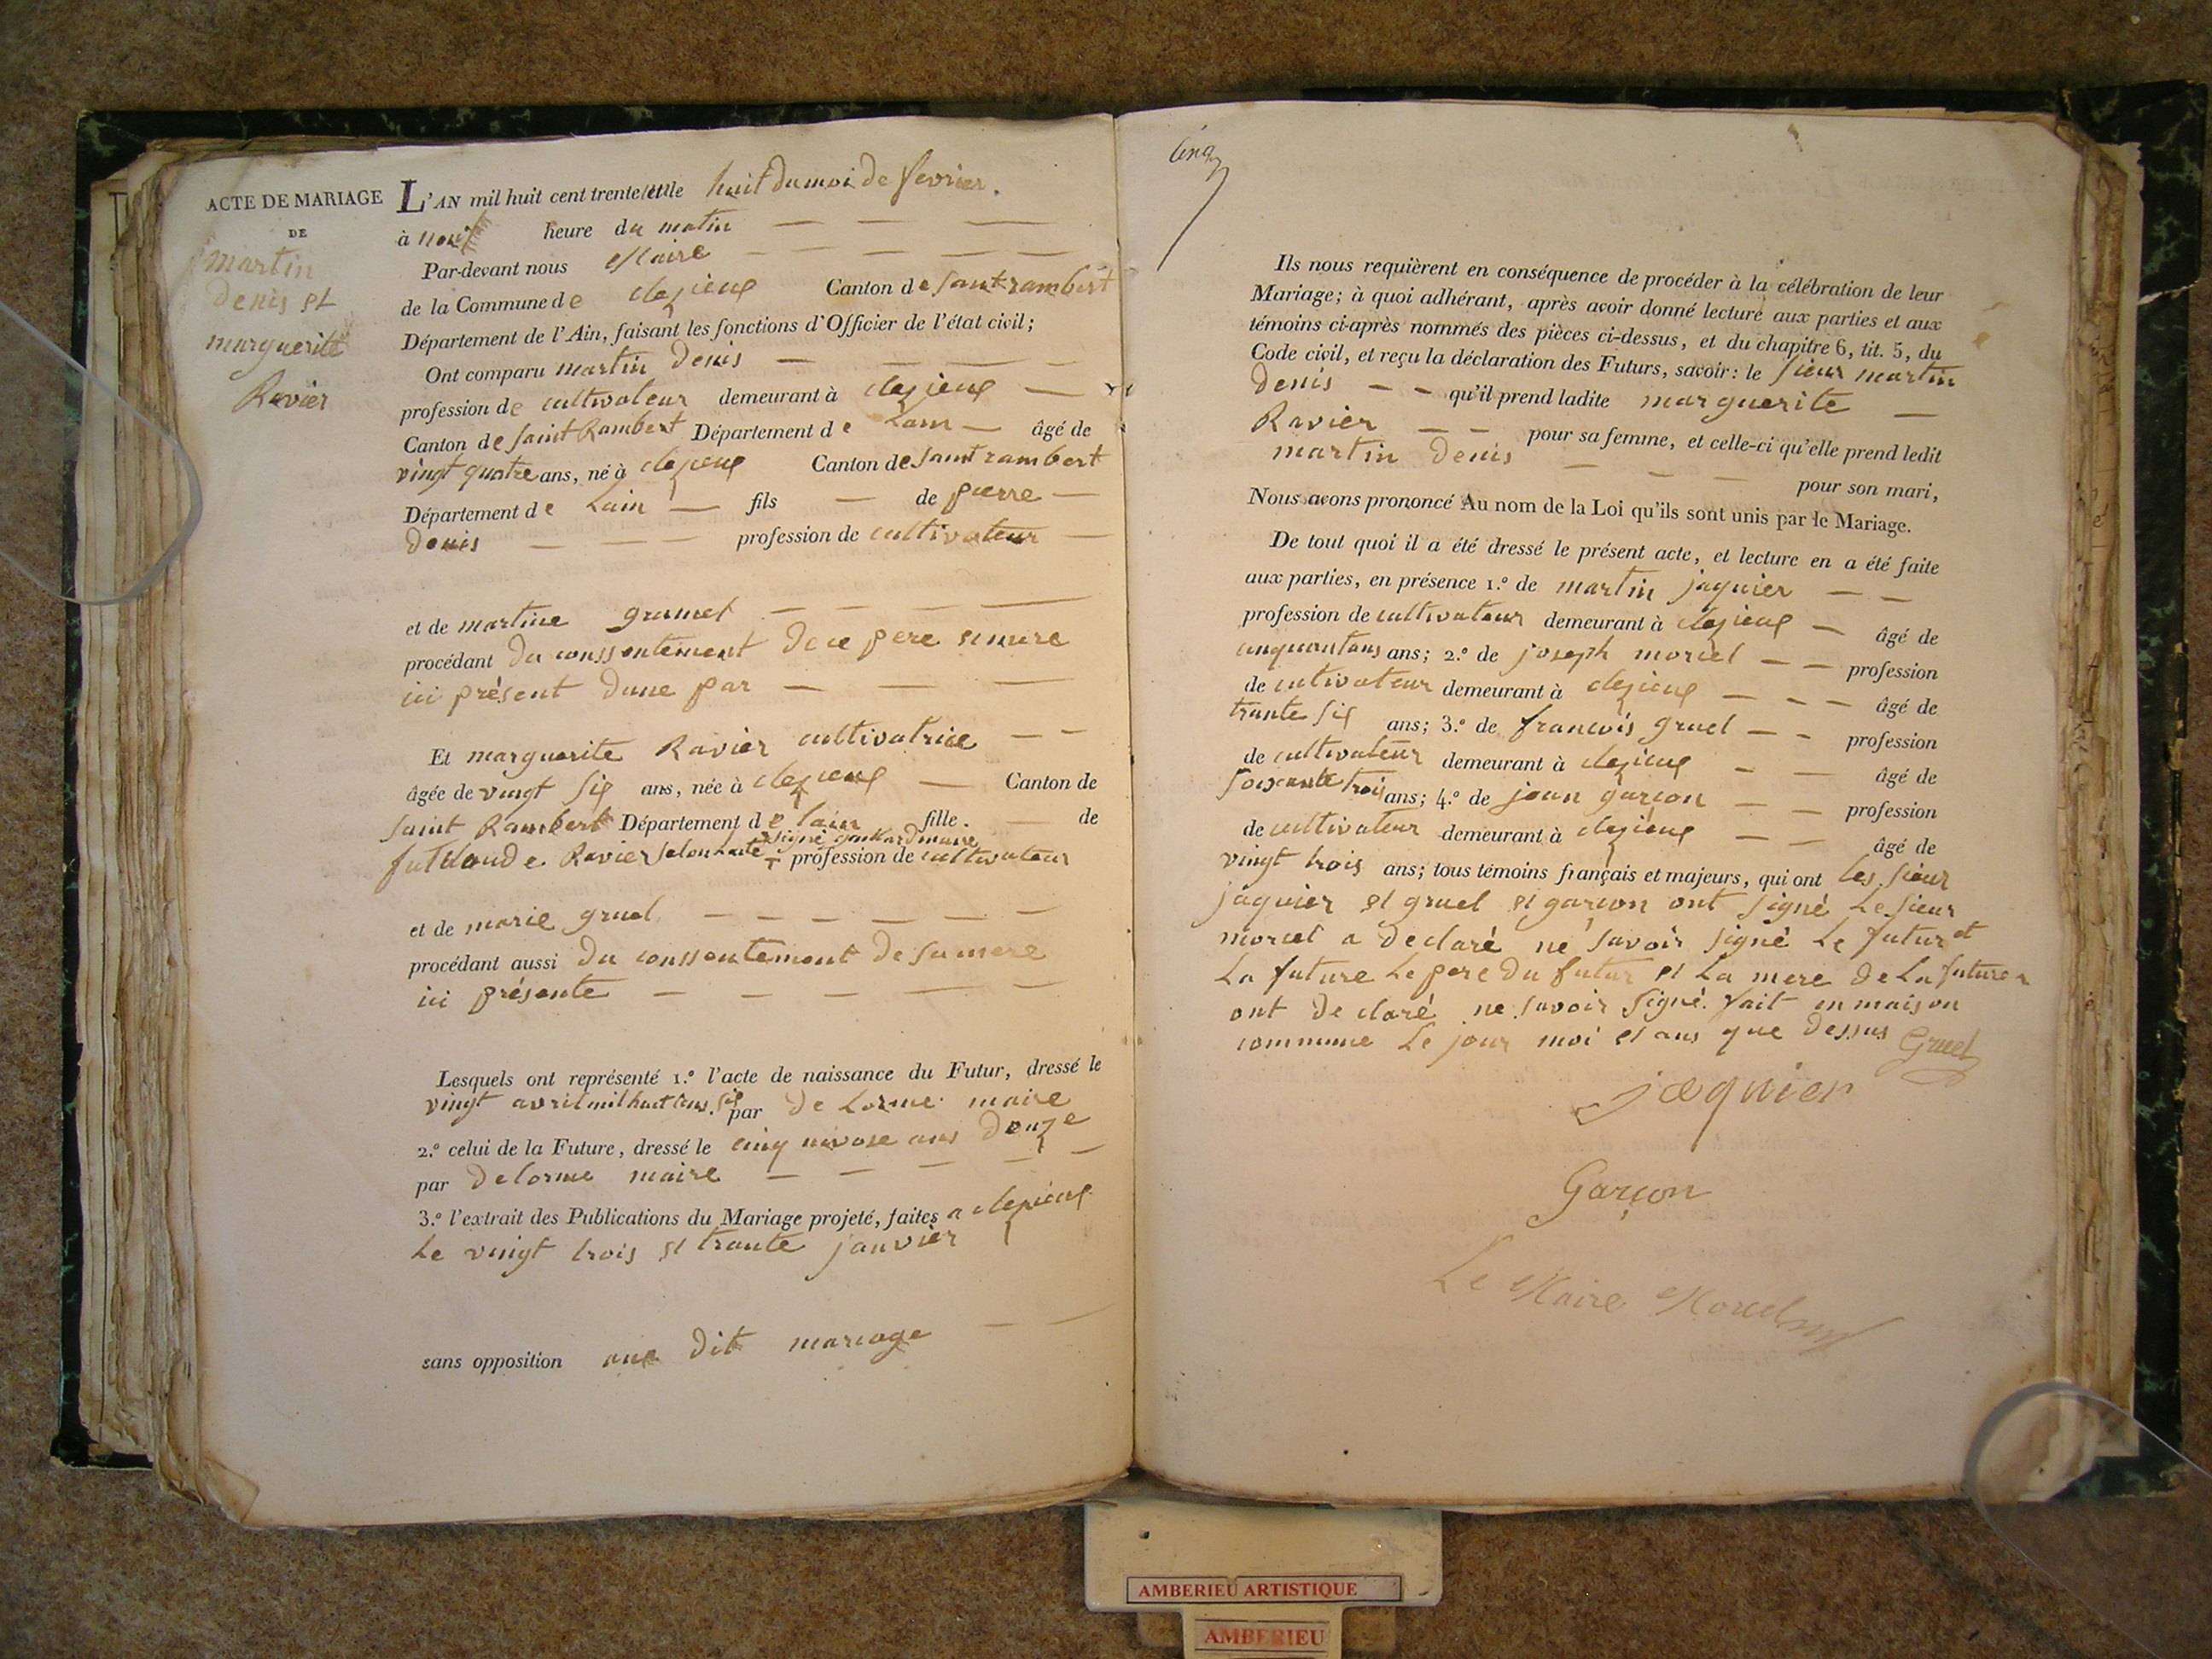 ACTE DE MARIAGE
DE
martin
denis et
marguerite
Ravier
L'AN mil huit cent trente et le huit du moi de fevrier.
à heure du matin
Par-devant nous Maire
de la Commune de clezieux Canton de saint rambert
Département de l'Ain, faisant les fonctions d'Officier de l'état civil;
Ont comparu martin denis
profession de cultivateur demeurant à clezieux
Canton de saint Rambert Département de Lain âgé de
vingt quatre ans, né à clezieux Canton de saint rambert
Département de Lain fils de pierre
denis profession de cultivateur
et de martine grumet
procédant du conssentement de ce pere et mere
ici présent dune par
Et marguerite Ravier cultivatrice
âgée de vingt six ans, née à clezieux Canton de
saint Rambert Département de lain fille. de
signé maire
fut Claude Ravier selon profession de cultivateur
et de marie gruel
procédant aussi du conssentement de sa mere
ici présente
Lesquels ont représenté 1.º l'acte de naissance du Futur, dressé le
vingt avril mil huit cens six par de Lorme maire
2.º celui de la Future, dressé le cinq nivose ans douze
par delorme maire
3.º l'extrait des Publications du Mariage projeté, faites a clezieux
Le vingt trois et trante janvier
sans opposition aux dit mariage
Cinq
Ils nous requièrent en conséquence de procéder à la célébration de leur
Mariage; à quoi adhérant, après avoir donné lecture aux parties et aux
témoins ci-après nommés des pièces ci-dessus, et du chapitre 6, tit. 5, du
Code civil, et reçu la déclaration des Futurs, savoir: le sieur martin
denis qu'il prend ladite marguerite
Ravier pour sa femme, et celle-ci qu'elle prend ledit
martin denis
pour son mari,
Nous avons prononcé Au nom de la Loi qu'ils sont unis par le Mariage.
De tout quoi il a été dressé le présent acte, et lecture en a été faite
aux parties, en présence 1.º de martin jaquier
profession de cultivateur demeurant à clezieux âgé de
cinquantans ans; 2.º de joseph morcel profession
de cultivateur demeurant à clezieux âgé de
trante six ans; 3.º de francois gruel profession
de cultivateur demeurant à clezieux âgé de
soixante trois ans; 4.º de jean garçon profession
de cultivateur demeurant à clezieux âgé de
vingt trois ans; tous témoins français et majeurs, qui ont les sieur
jaquier et gruel et garçon ont signé Le sieur
morcel a declaré ne savoir signé Le futur et
La future Le pere du futur et La mere de La future
ont declaré ne savoir signé. fait en maison
commune Le jour moi et ans que dessus Gruel
jaquier
Garçon
Le Maire Morcel
AMBERIEU ARTISTIQUE
AMBERIEU